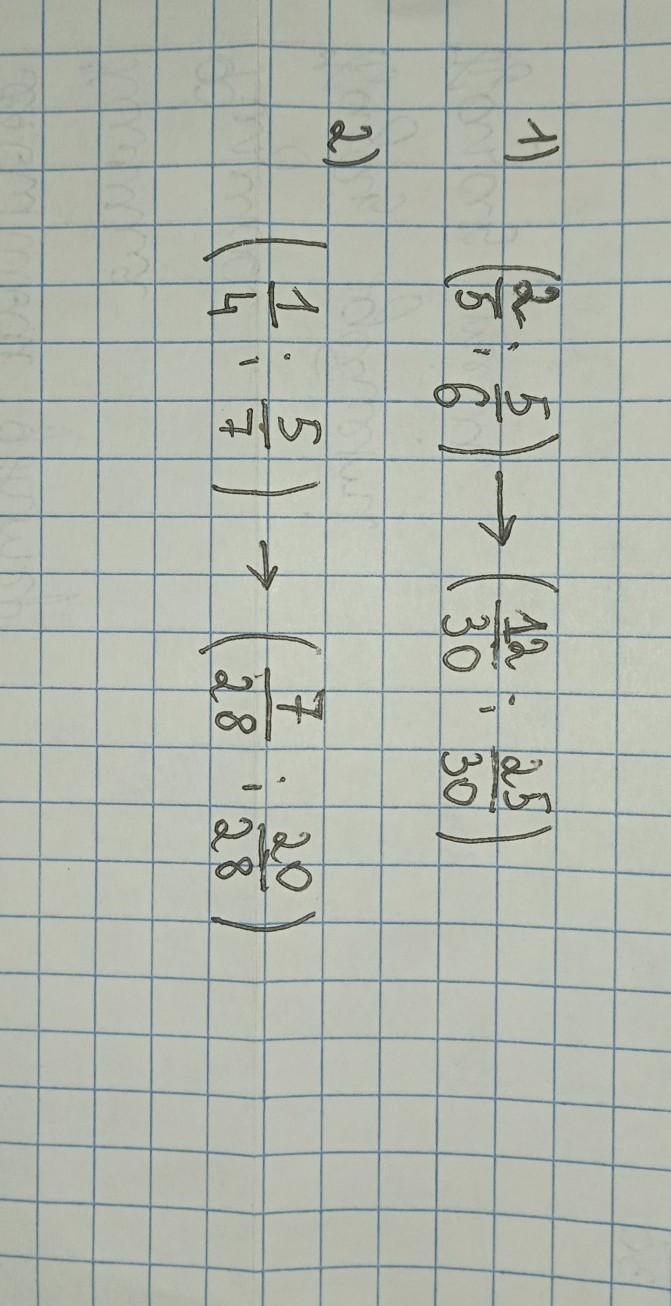 1) (2/5 ; 5/6) → (12/30 ; 25/30)
2) (1/4 ; 5/7) → (7/28 ; 20/28)